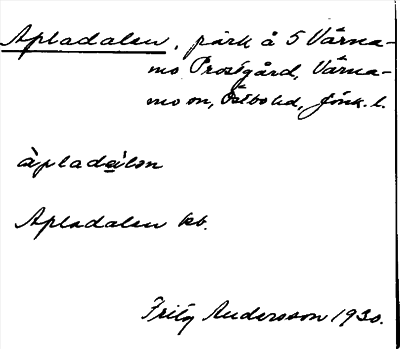 Apladalen, park å 5 Värna-
mo Prostgård, Värna-
mo sn, Östbo hd, Jönk. l.
àpladálen
Apladalen kb.
Fritz Andersson 1930.